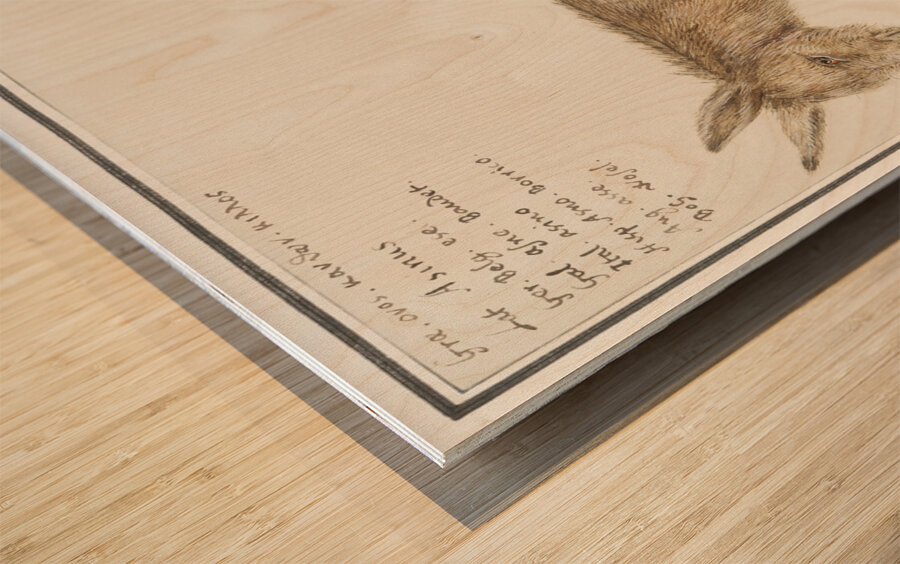 Gra. ονος. κανθων. κιλλος
Lat Asinus
Ger. Belg. esel
Gal. asne. Baudet.
Ital. asino
Hisp. Asno. Borrico
Ang. asse.
Boë. Wosel.